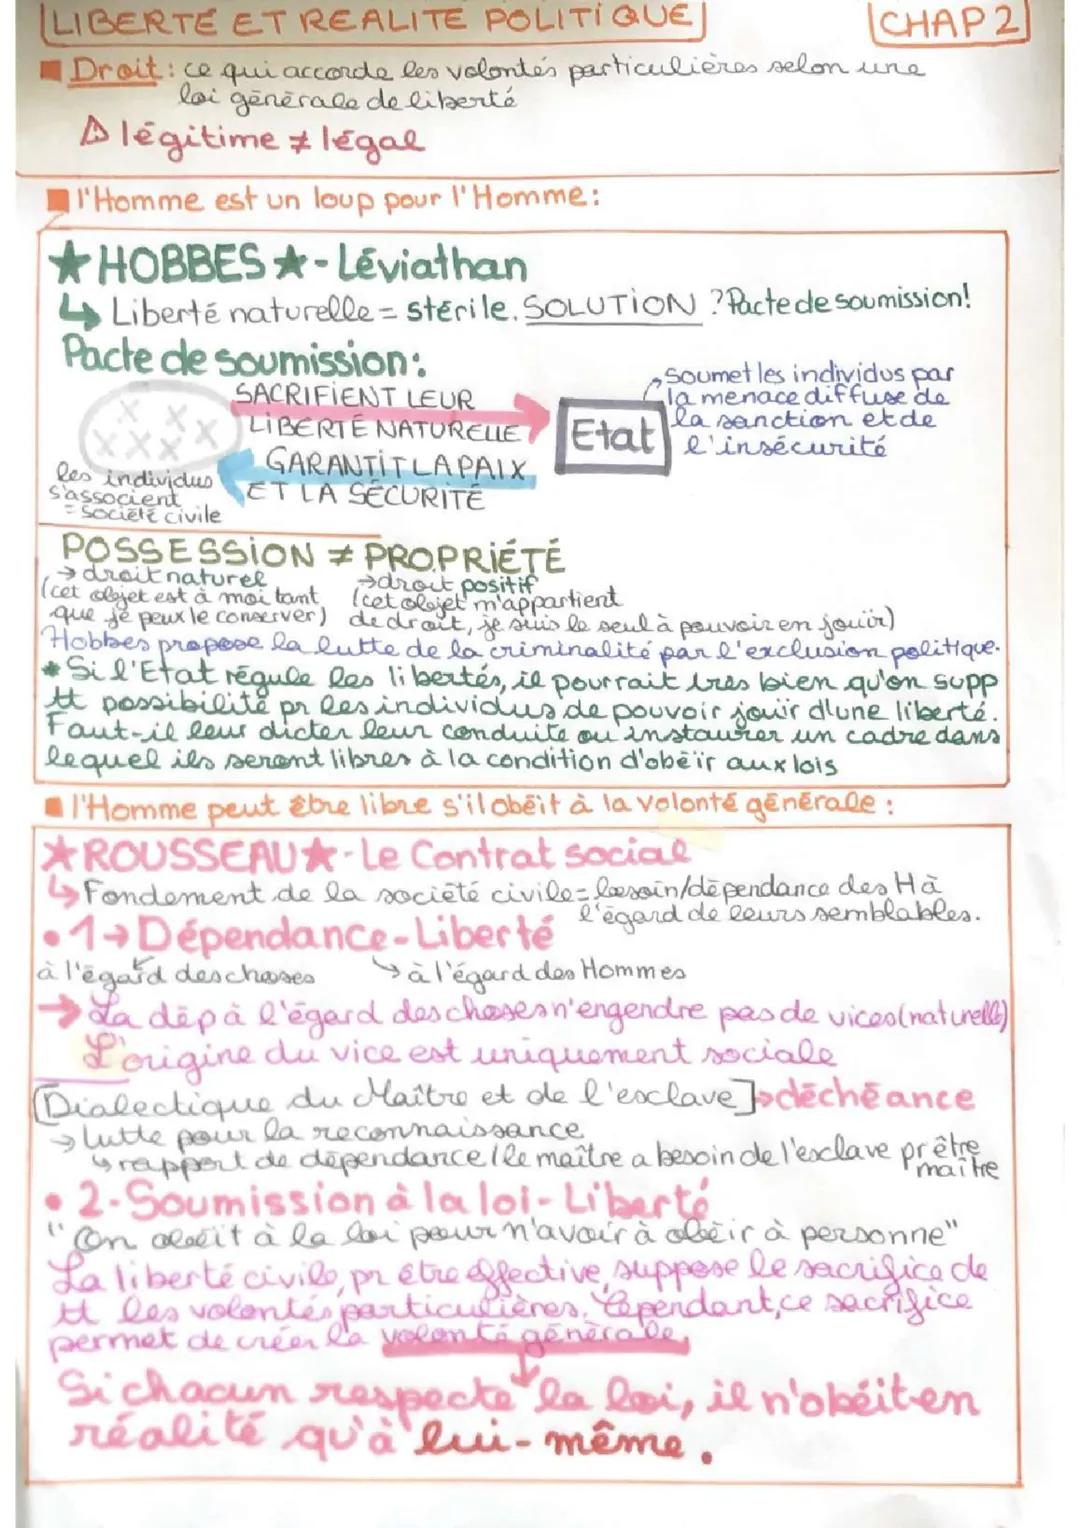 LIBERTÉ ET REALITE POLITIQUE
CHAP 2
Droit : ce qui accorde les volontés particulières selon une
loi générale de liberté
⚠ légitime ≠ légal
l'Homme est un loup pour l'Homme :
★ HOBBES ★ - Léviathan
↳ Liberté naturelle = stérile. SOLUTION ? Pacte de soumission!
Pacte de soumission :
SACRIFIENT LEUR
LIBERTÉ NATURELLE
GARANTIT LA PAIX
ET LA SÉCURITÉ
x x x x x x
les individus
s'associent
= société civile
Etat
→ Soumet les individus par
la menace diffuse de
la sanction et de
l'insécurité
POSSESSION ≠ PROPRIÉTÉ
→ droit naturel
(cet objet est à moi tant
que je peux le conserver)
→ droit positif
(cet objet m'appartient
de droit, je suis le seul à pouvoir en jouir)
Hobbes propose la lutte de la criminalité par l'exclusion politique.
* Si l'Etat régule les libertés, il pourrait très bien qu'on supp
tt possibilité pr les individus de pouvoir jouir d'une liberté.
Faut-il leur dicter leur conduite ou instaurer un cadre dans
lequel ils seront libres à la condition d'obéir aux lois
l'Homme peut être libre s'il obéit à la volonté générale :
★ ROUSSEAU ★ - Le Contrat social
↳ Fondement de la société civile = besoin/dépendance des H à
l'égard de leurs semblables.
• 1 → Dépendance - Liberté
à l'égard des choses → à l'égard des Hommes
→ La dép à l'égard des choses n'engendre pas de vices (naturelle)
L'origine du vice est uniquement sociale
[Dialectique du Maître et de l'esclave] → déchéance
→ lutte pour la reconnaissance
↳ rapport de dépendance (le maître a besoin de l'esclave pr être
maître
• 2 - Soumission à la loi - Liberté
"On obéit à la loi pour n'avoir à obéir à personne"
La liberté civile, pr être effective, suppose le sacrifice de
tt les volontés particulières. Cependant, ce sacrifice
permet de créer la volonté générale.
Si chacun respecte la loi, il n'obéit en
réalité qu'à lui-même.